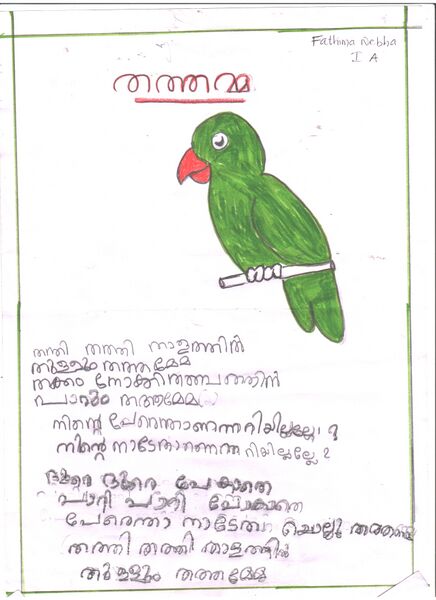 Fathima Nebha
I A
തത്തമ്മ
തത്തി തത്തി താളത്തിൽ
തുള്ളും തത്തമ്മേ
തക്കം നോക്കി
പാറും തത്തമ്മേ
നിന്റെ പേരെന്താണെന്നറിയില്ലല്ലോ 2
നിന്റെ നാടേതാണെന്നറിയില്ലല്ലോ 2
ദൂരെ ദൂരെ പോകാതെ
പാറി പാറി പോകാതെ
പേരെന്താ നാടേതാ ചൊല്ലൂ തത്തമ്മേ
തത്തി തത്തി താളത്തിൽ
തുള്ളും തത്തമ്മേ